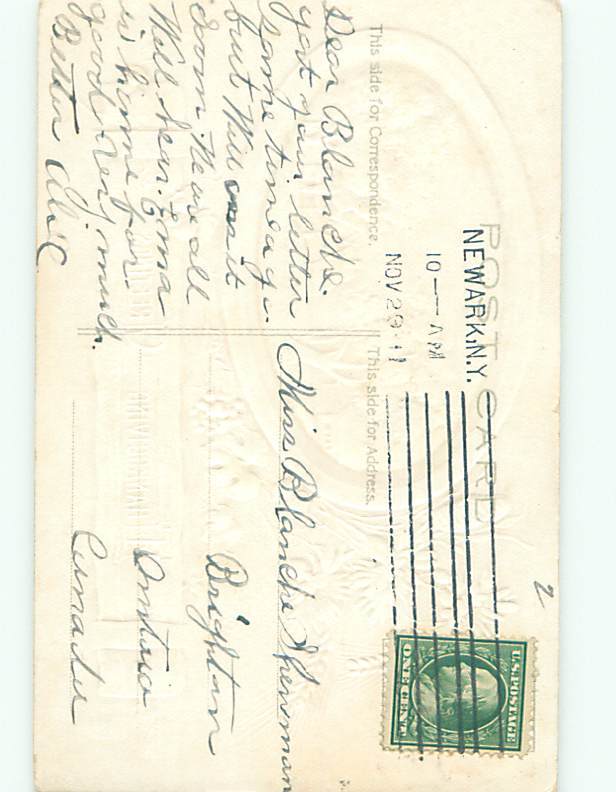 POST CARD
This side for Correspondence.
This side for Address.
NEWARK, N.Y.
NOV 29 11
10 — AM
U.S. POSTAGE
ONE CENT
2
Dear Blanche.
got your letter
some time ago.
but Will write
soon. Were all
Well here. Ema
is home for
good. very much
Better
Miss Blanche
Brighton
Ontario
Canada